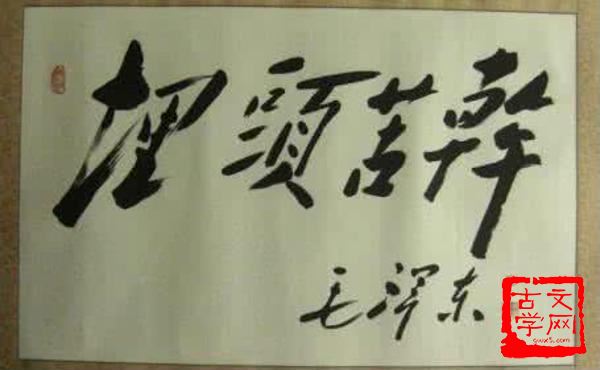 埋頭苦幹
毛泽东
古文
学网
gwx5.com